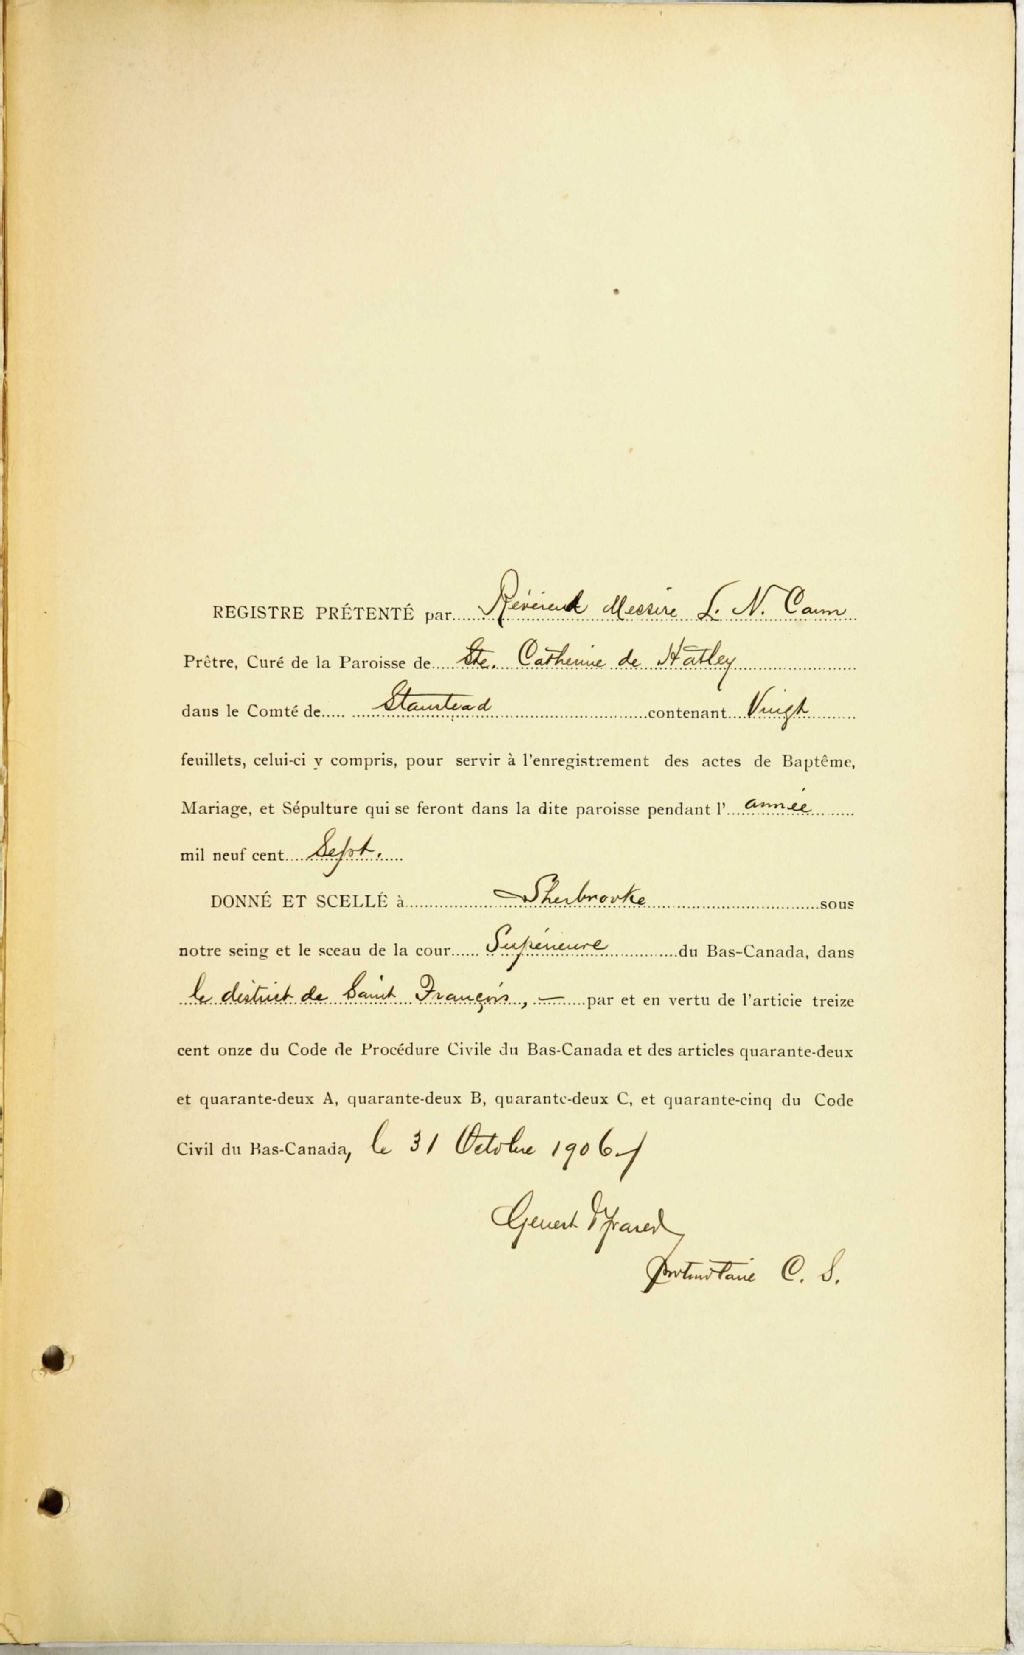 REGISTRE PRÉTENTÉ par Révérend Messire L. N. Caron
Prêtre, Curé de la Paroisse de Ste. Catherine de Hatley
dans le Comté de Stanstead contenant Vingt
feuillets, celui-ci y compris, pour servir à l'enregistrement des actes de Baptême,
Mariage, et Sépulture qui se feront dans la dite paroisse pendant l'année
mil neuf cent Sept.
DONNÉ ET SCELLÉ à Sherbrooke sous
notre seing et le sceau de la cour Supérieure du Bas-Canada, dans
le district de Saint François, — par et en vertu de l'articie treize
cent onze du Code de Procédure Civile du Bas-Canada et des articles quarante-deux
et quarante-deux A, quarante-deux B, quarante-deux C, et quarante-cinq du Code
Civil du Bas-Canada, le 31 Octobre 1906
Genest
Protonotaire C. S.